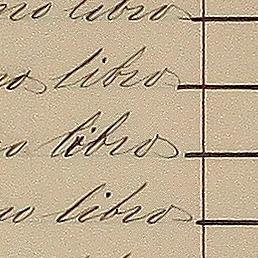 mo libro
mo libro
mo libro
mo libro